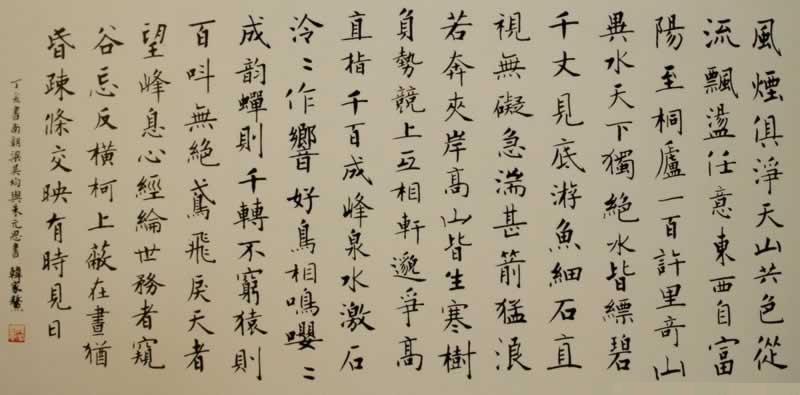 風煙俱淨天山共色從
流飄盪任意東西自富
陽至桐廬一百許里竒山
異水天下獨絕水皆縹碧
千丈見底游魚細石直
視無礙急湍甚箭猛浪
若奔夾岸高山皆生寒樹
負勢競上互相軒邈爭高
直指千百成峰泉水激石
泠〻作響好鳥相鳴嚶〻
成韵蟬則千轉不窮猿則
百叫無絕鳶飛戾天者
望峰息心經綸世務者窺
谷忘反橫柯上蔽在晝猶
昏疎條交映有時見日
丁亥書南朝梁吳均與朱元思書 韓家